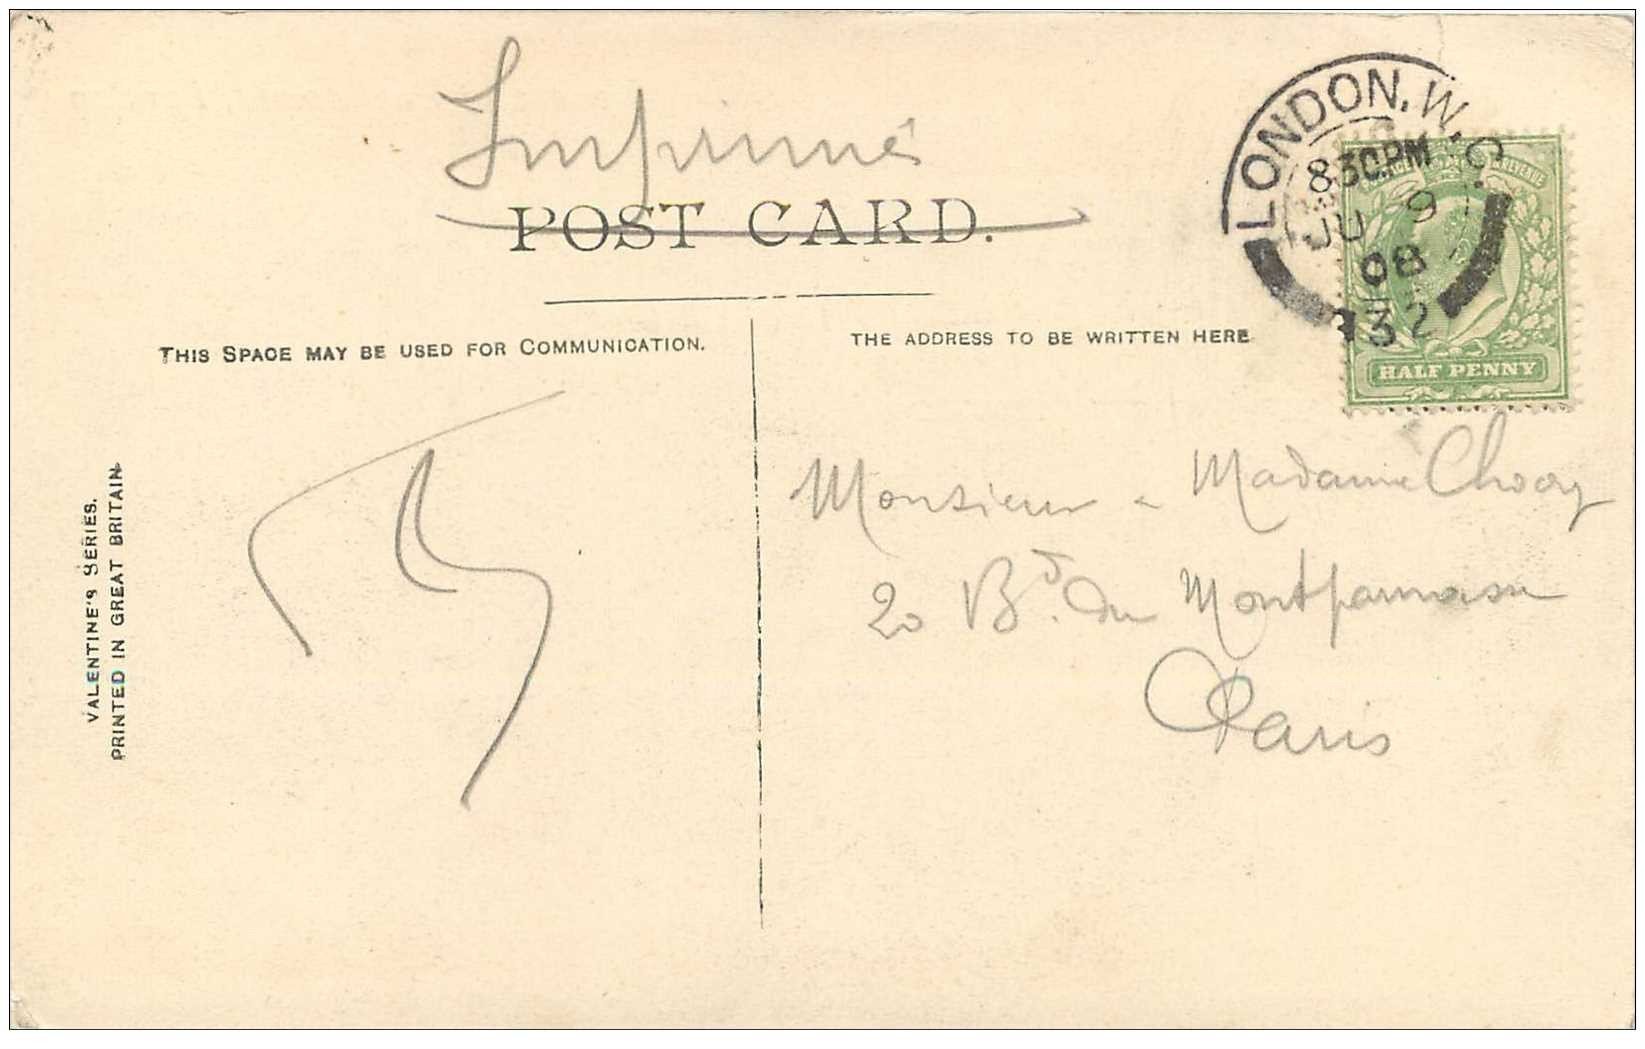 Imprimés
POST CARD.
LONDON. W.C.
8 30 PM
JU 9
08
32
HALF PENNY
THIS SPACE MAY BE USED FOR COMMUNICATION.
THE ADDRESS TO BE WRITTEN HERE
VALENTINE'S SERIES.
PRINTED IN GREAT BRITAIN
Monsieur & Madame
20 Bd. du Montparnasse
Paris